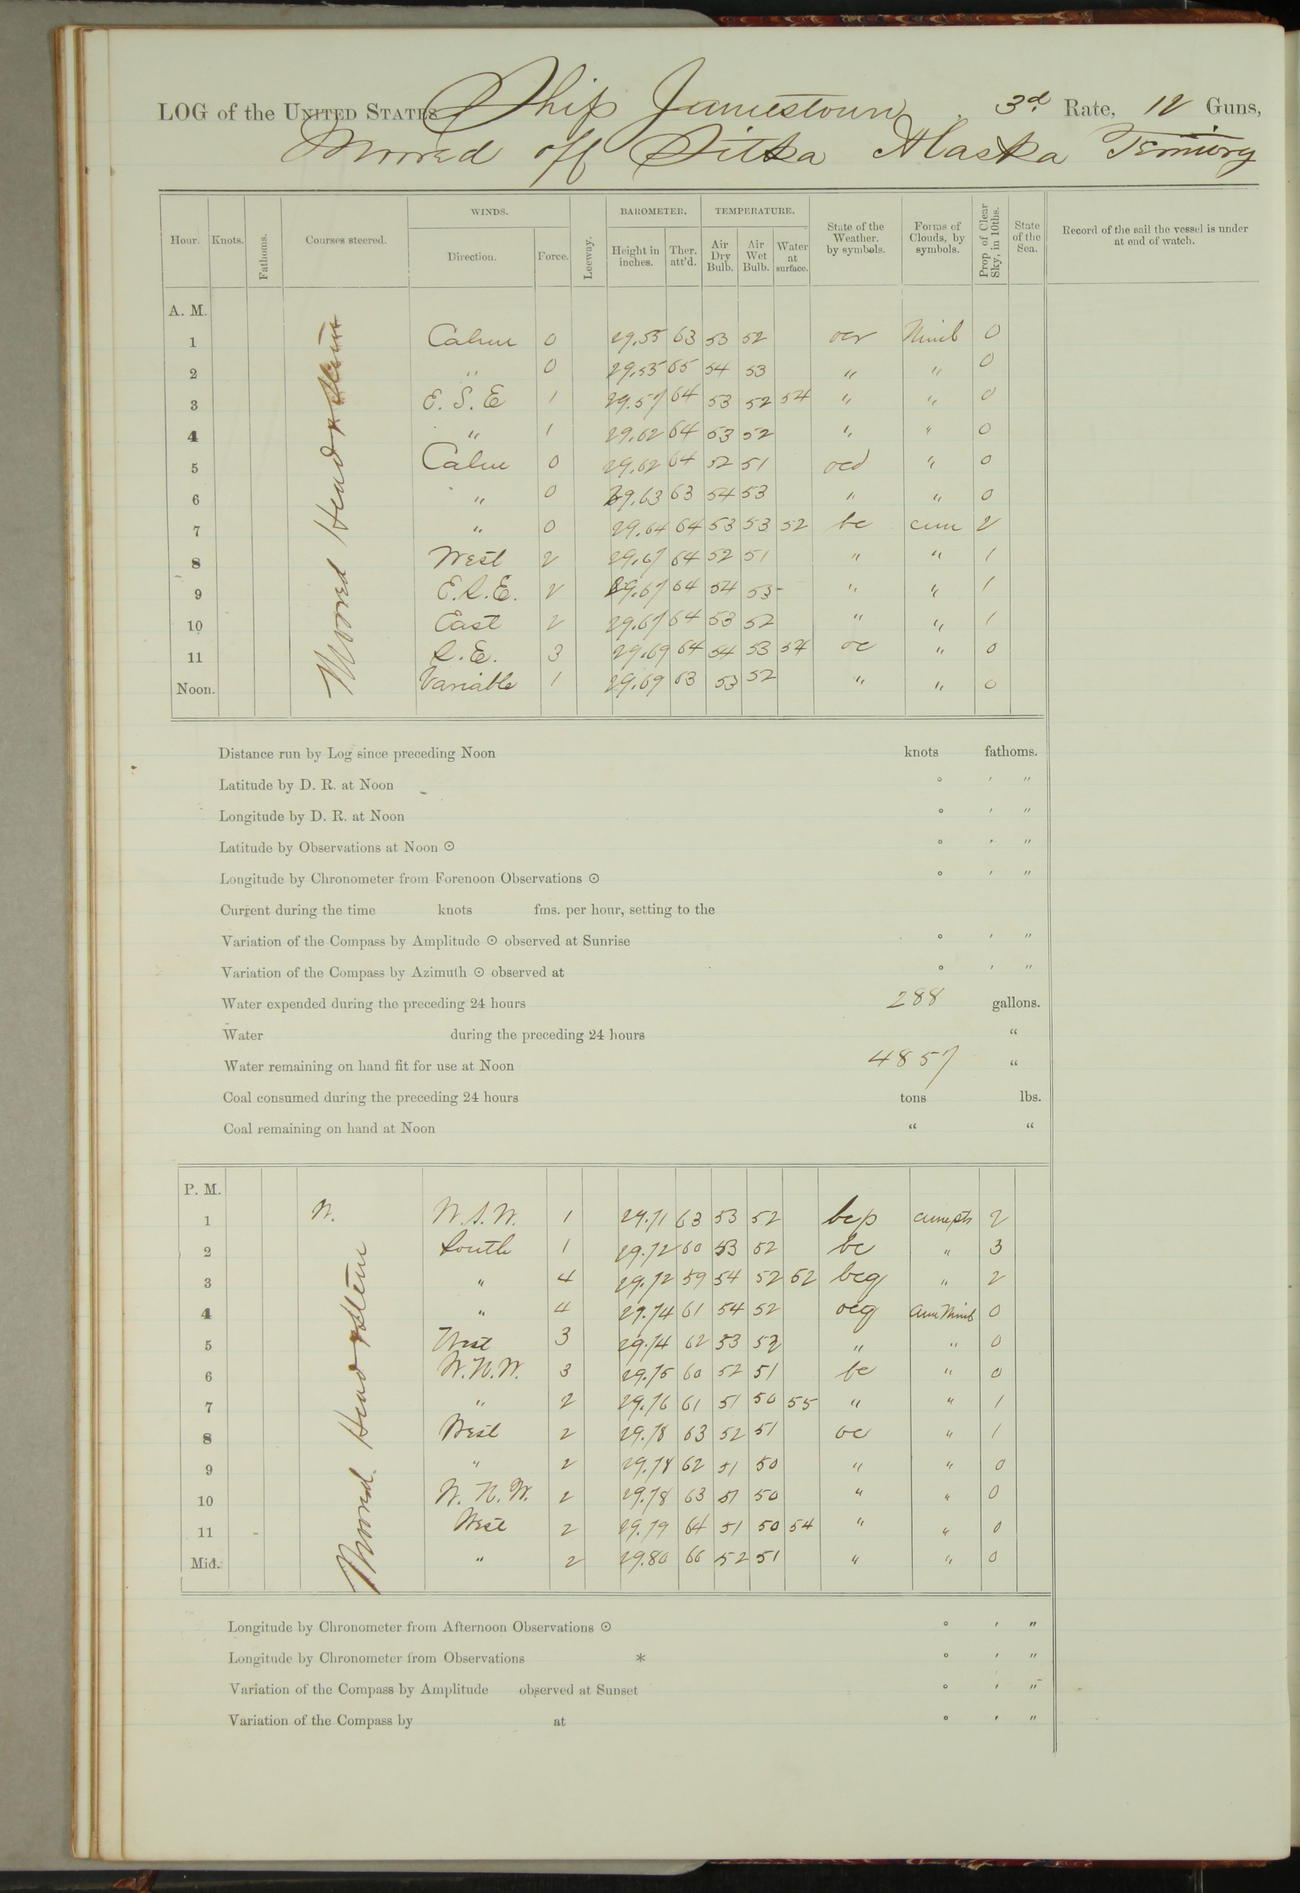 LOG of the UNITED STATES Ship Jamestown, 3d Rate, 12 Guns,
Moored off Sitka Alaska Territory
Hour. Knots. Fathoms. Courses steered. WINDS. Direction. Force. Leeway. BAROMETER. Height in inches. Ther. att'd. TEMPERATURE. Air Dry Bulb. Air Wet Bulb. Water at surface. State of the Weather. by symbols. Forms of Clouds, by symbols. Prop. of Clear Sky, in 10ths. State of the Sea. Record of the sail the vessel is under at end of watch.
A. M.
Moored Head & Stern
1 Calm 0 29.55 63 53 52 ocr Nimb 0
2 " 0 29.55 65 54 53 " " 0
3 E. S. E 1 29.57 64 53 52 54 " " 0
4 " 1 29.62 64 53 52 " " 0
5 Calm 0 29.62 64 52 51 ocd " 0
6 " 0 29.63 63 54 53 " " 0
7 " 0 29.64 64 53 53 52 bc cum 2
8 West 2 29.67 64 52 51 " " 1
9 E.S.E. 2 29.67 64 54 53 " " 1
10 East 2 29.67 64 53 52 " " 1
11 S.E. 3 29.69 64 54 53 54 oc " 0
Noon. Variable 1 29.69 63 53 52 " " 0
Distance run by Log since preceding Noon knots fathoms.
Latitude by D. R. at Noon ° ′ ″
Longitude by D. R. at Noon ° ′ ″
Latitude by Observations at Noon ⊙ ° ′ ″
Longitude by Chronometer from Forenoon Observations ⊙ ° ′ ″
Current during the time knots fms. per hour, setting to the
Variation of the Compass by Amplitude ⊙ observed at Sunrise ° ′ ″
Variation of the Compass by Azimuth ⊙ observed at ° ′ ″
Water expended during the preceding 24 hours 288 gallons.
Water during the preceding 24 hours "
Water remaining on hand fit for use at Noon 4857 "
Coal consumed during the preceding 24 hours tons lbs.
Coal remaining on hand at Noon " "
P. M.
Moored Head & Stern
1 N. W.S.W. 1 29.71 63 53 52 bcp 2
2 South 1 29.72 60 53 52 bc " 3
3 " 4 29.72 59 54 52 52 bcq " 2
4 " 4 29.74 61 54 52 ocq Cum Nimb 0
5 West 3 29.74 62 53 52 " " 0
6 W.N.W. 3 29.75 60 52 51 bc " 0
7 " 2 29.76 61 51 50 55 " " 1
8 West 2 29.78 63 52 51 oc " 1
9 " 2 29.78 62 51 50 " " 0
10 W. N. W. 2 29.78 63 51 50 " " 0
11 West 2 29.79 64 51 50 54 " " 0
Mid. " 2 29.80 66 52 51 " " 0
Longitude by Chronometer from Afternoon Observations ⊙ ° ′ ″
Longitude by Chronometer from Observations * ° ′ ″
Variation of the Compass by Amplitude observed at Sunset ° ′ ″
Variation of the Compass by at ° ′ ″